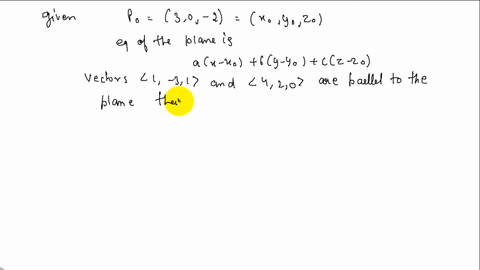 given P₀ = (3,0,-2) = (x₀, y₀, z₀)
eq of the plane is
a(x-x₀) + b(y-y₀) + c(z-z₀)
vectors <1, -3, 1> and <4, 2, 0> are parllel to the
plane then